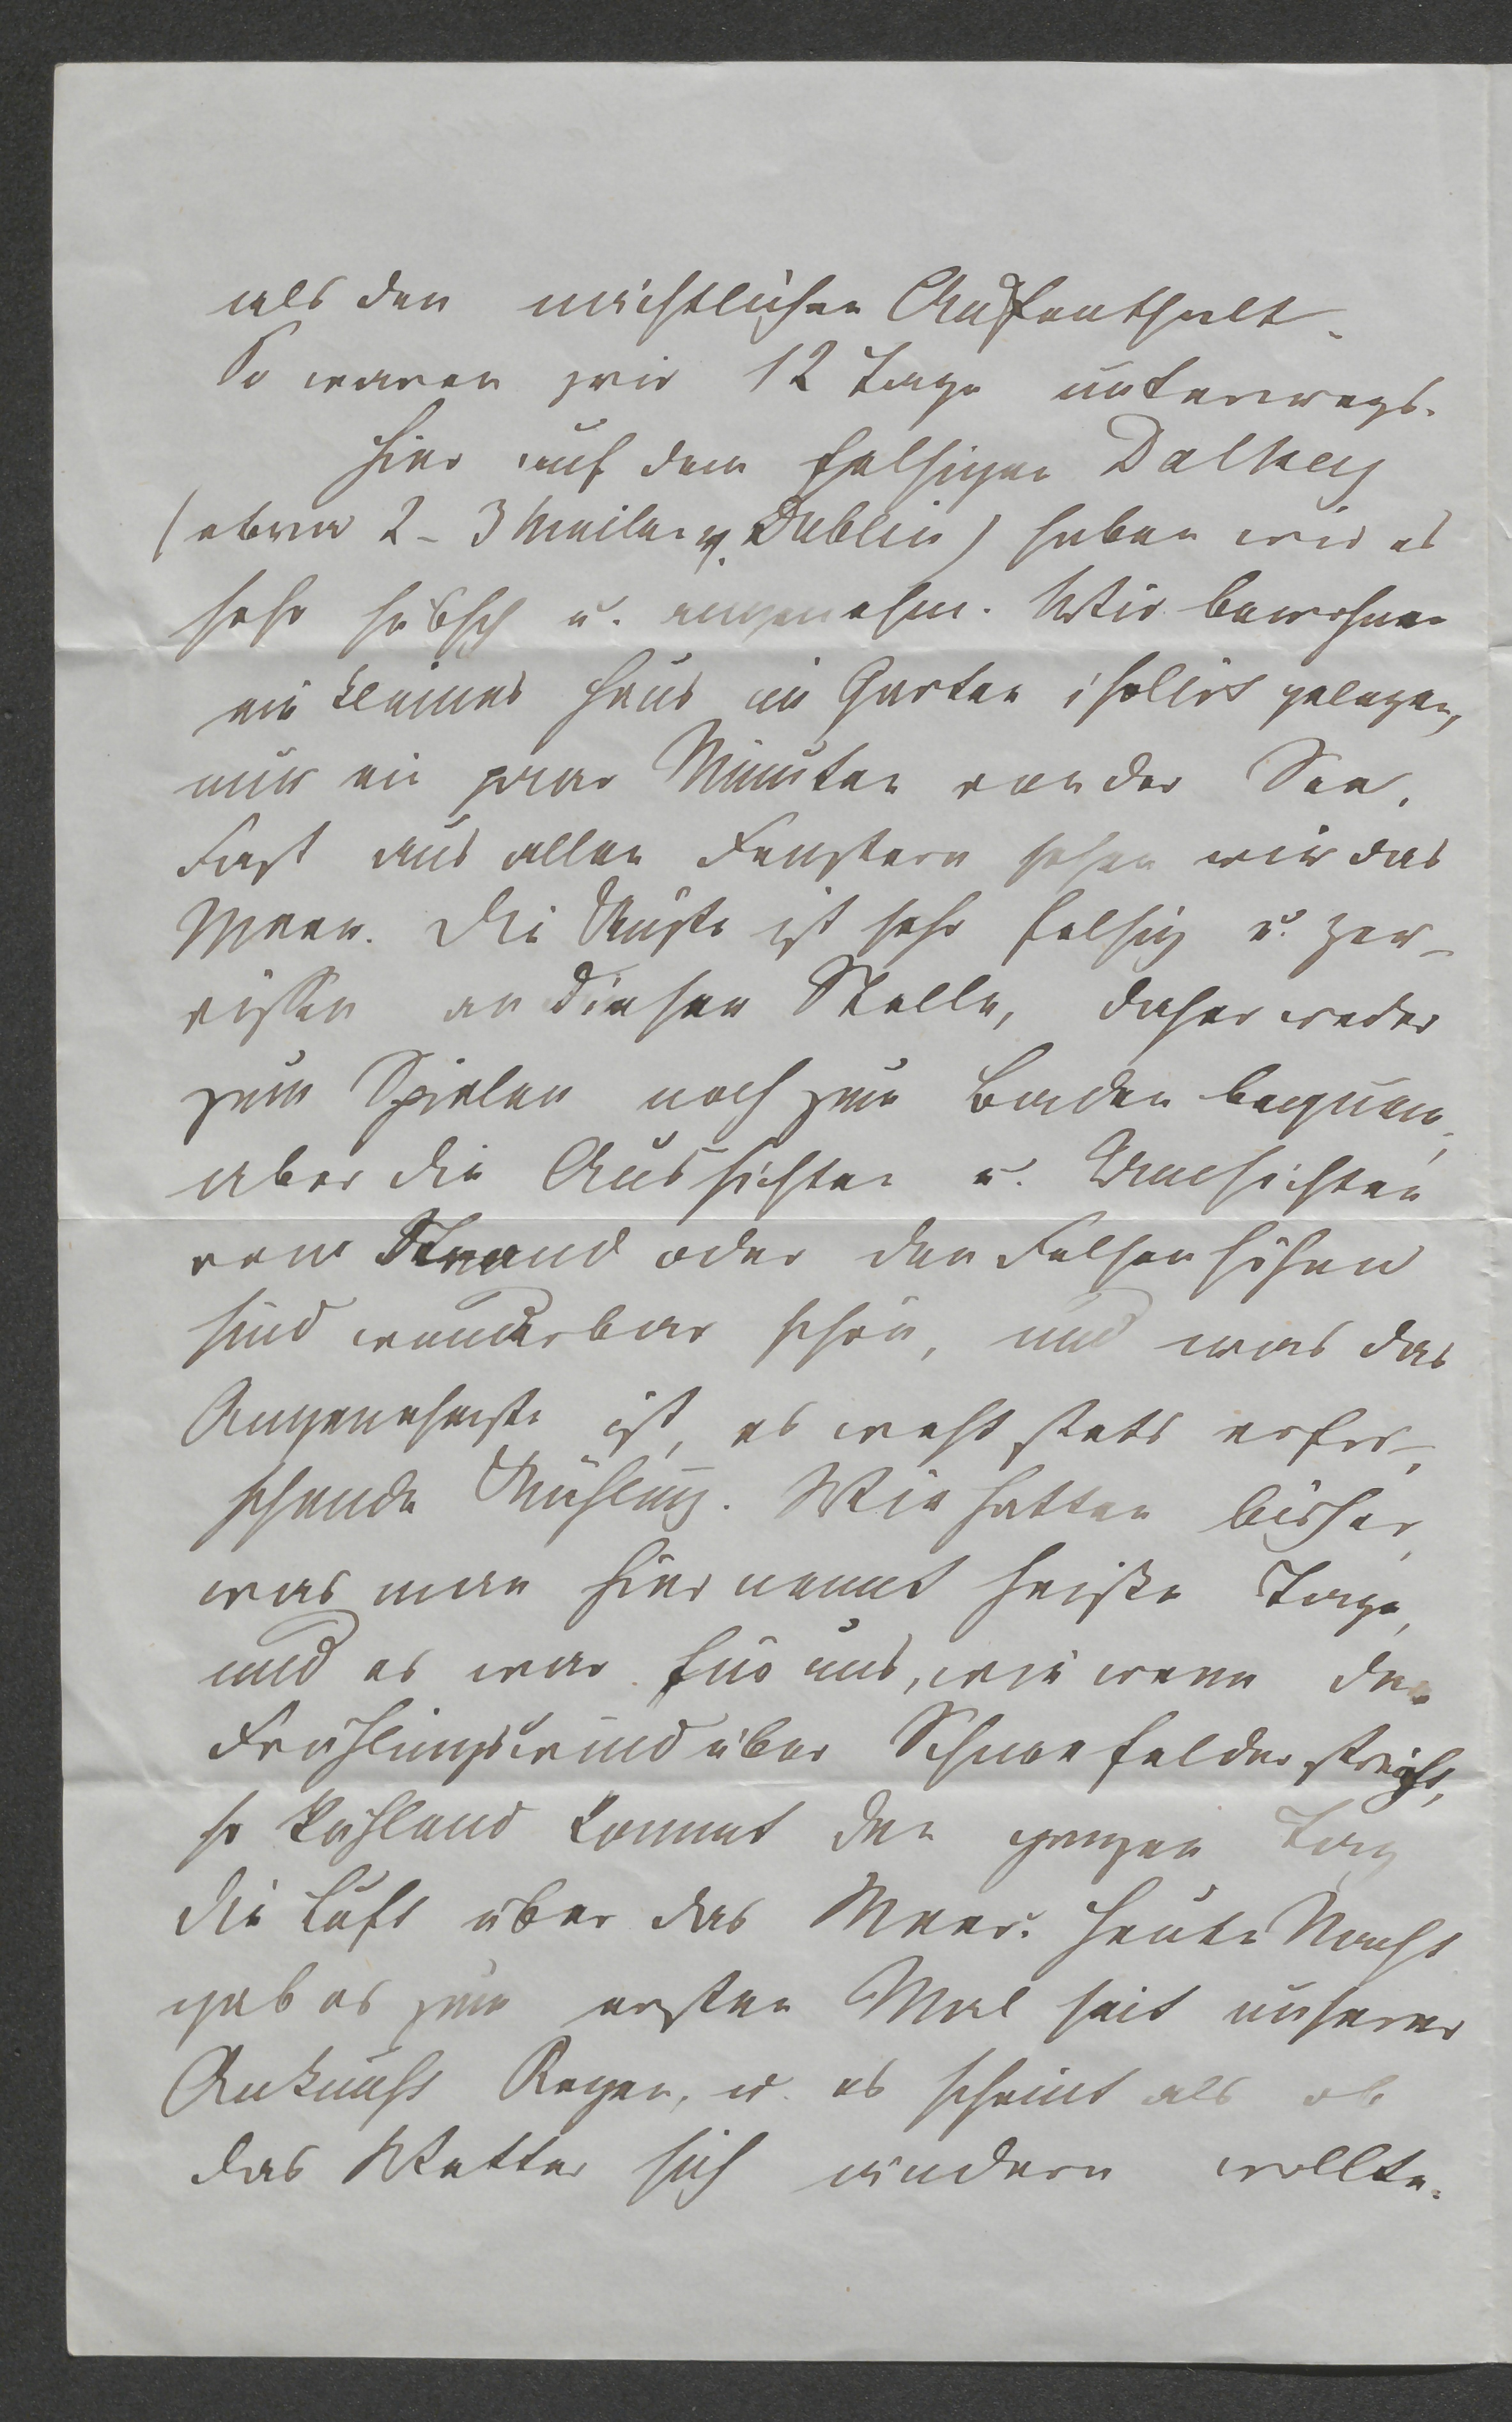 als den nächtlichen Aufenthalt.
So waren wir 12 Tage unterwegs.
Hier auf dem felsigen Dalkey
(etwa 2-3 Meilen v. Dublin) haben wir es
sehr hübsch u. angenehm. Wir bewohnen
ein kleines Haus im Garten isolirt gelegen,
nur ein paar Minuten von der See.
Fast aus allen Fenstern sehen wir das
Meer. Die Küste ist sehr felsig u. zer-
rissen an dieser Stelle, daher weder
zum Spielen noch zum Baden bequem,
aber die Aussichten u. Umsichten
vom Strand oder den Felsenhöhen
sind wunderbar schön, und was das
Angenehmste ist, es weht stets erfri-
schende Kühlung. Wir hatten bisher,
was man hier nennt heiße Tage,
und es war für uns, wie wenn der
Frühlingswind über Schneefelder streicht,
so kühlend kommt den ganzen Tag
die Luft über das Meer. Heute Nacht
gab es zum ersten Mal seit unserer
Ankunft Regen, u. es scheint als ob
das Wetter sich ändern wollte.